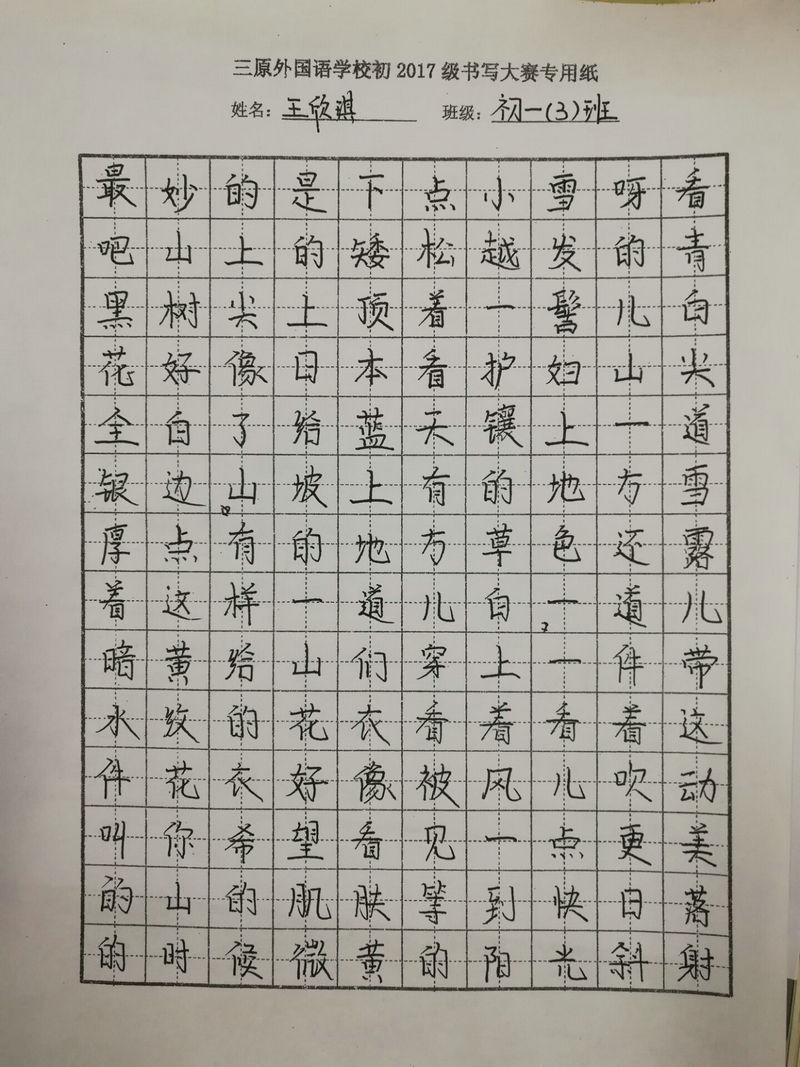 三原外国语学校初2017级书写大赛专用纸
姓名：王欣淇 班级：初一(3)班
最妙的是下点小雪呀看
吧山上的矮松越发的青
黑树尖上顶着一髻儿白
花好像日本看护妇山尖
全白了给蓝天镶上一道
银边山坡上有的地方雪
厚点有的地方草色还露
着这样一道儿白一道儿
暗黄给山们穿上一件带
水纹的花衣看着看着这
件花衣好像被风儿吹动
叫你希望看见一点更美
的山的肌肤等到快日落
的时候微黄的阳光斜射